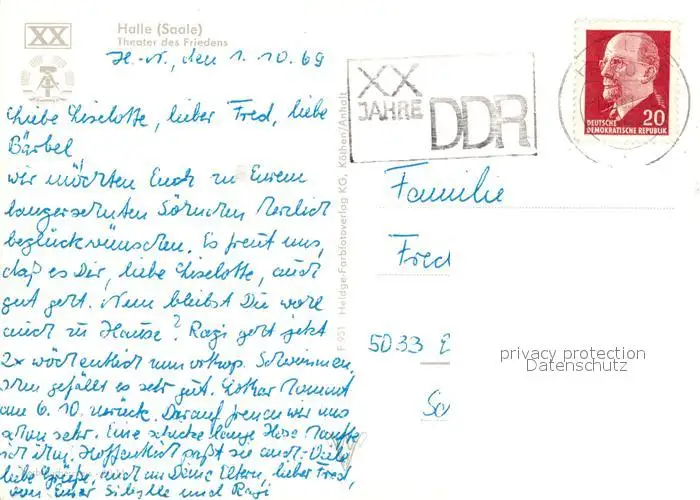 XX
Halle (Saale)
Theater des Friedens
H.-N., den 1.10.69
Liebe Liselotte, lieber Fred, liebe
Bärbel,
wir möchten Euch zu Eurem
langersehnten Söhnchen herzlich
beglückwünschen. Es freut uns,
daß es Dir, liebe Liselotte, auch
gut geht. Nun bleibst Du wohl
auch zu Hause? Ragi geht jetzt
2x wöchentlich zum orthop. Schwimmen,
ihm gefällt es sehr gut. Lothar kommt
am 6.10. zurück. Darauf freuen wir uns
schon sehr. Eine schicke lange Hose kaufte
ich ihm. Hoffentlich paßt sie auch. Viele
liebe Grüße, auch an Deine Eltern, lieber Fred,
von Eurer Sibylle und Ragi
F 951 Heldge-Farbfotoverlag KG, Köthen/Anhalt
XX
JAHRE DDR
20
DEUTSCHE
DEMOKRATISCHE REPUBLIK
Familie
Fred
5033
privacy protection
Datenschutz